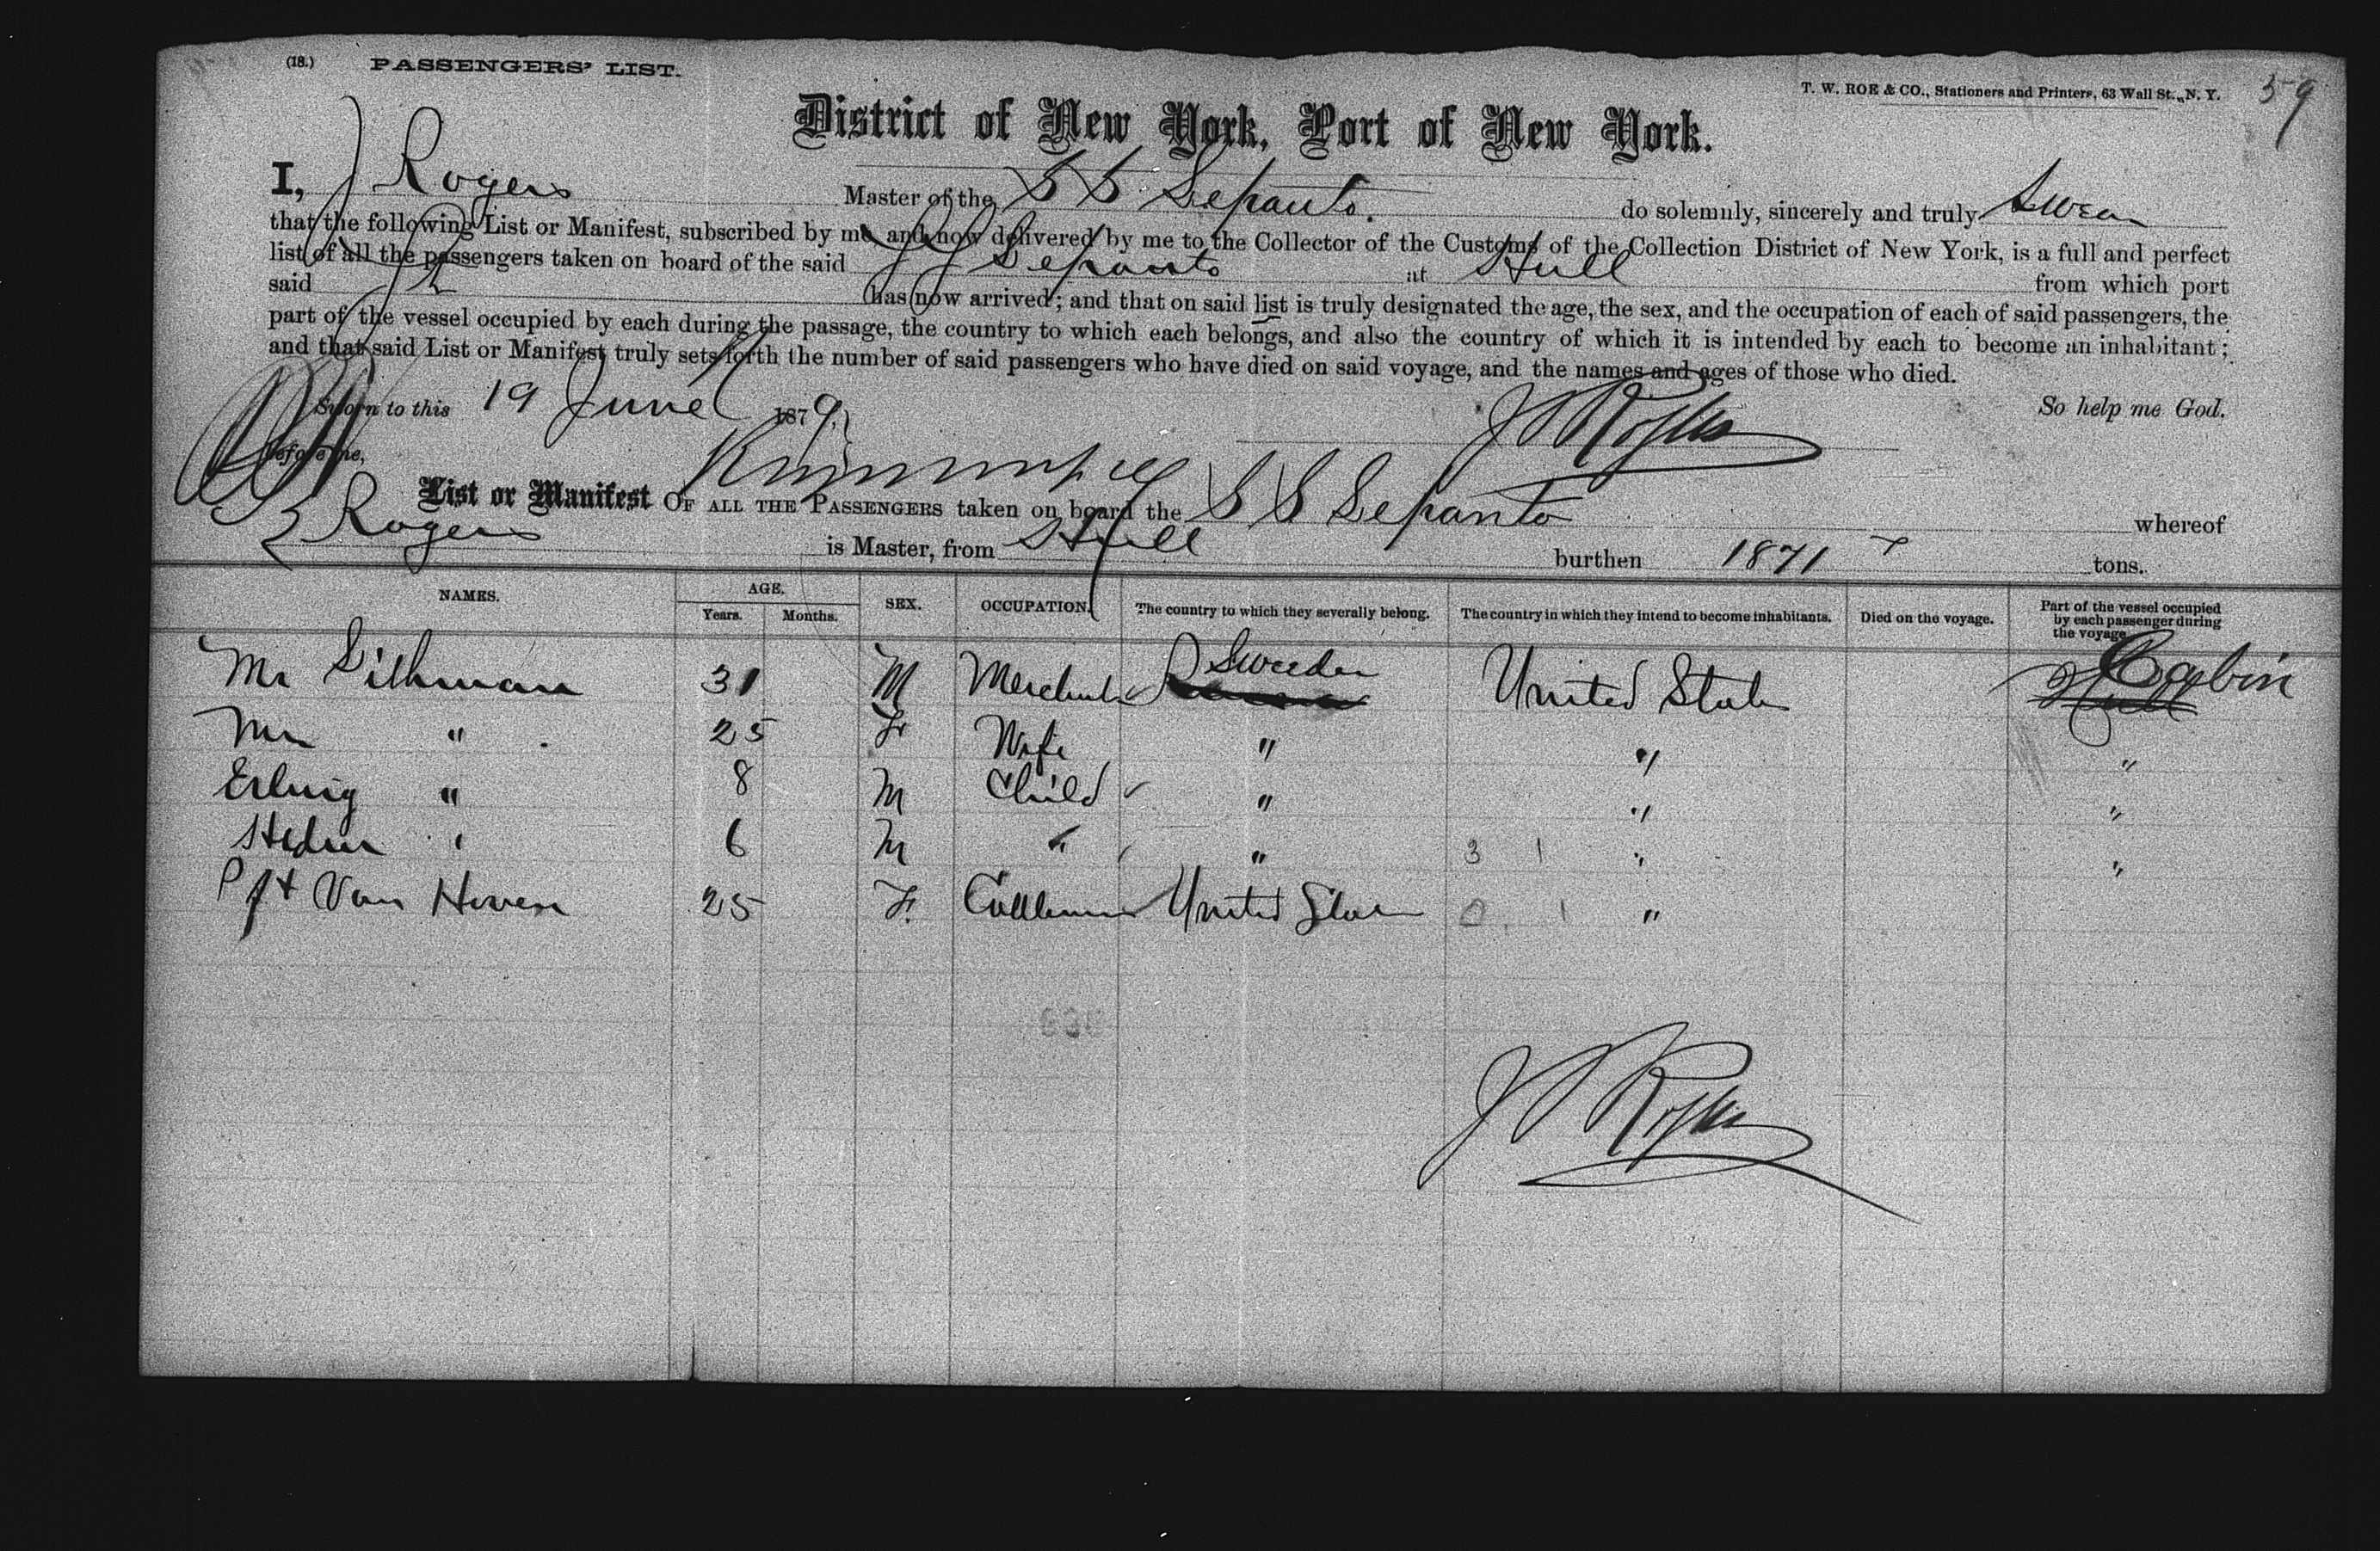 (18.) PASSENGERS' LIST.
T. W. ROE & CO., Stationers and Printers, 63 Wall St., N. Y. 59
District of New York, Port of New York.
I, J Rogers Master of the S S Lepanto. do solemnly, sincerely and truly Swear
that the following List or Manifest, subscribed by me and now delivered by me to the Collector of the Customs of the Collection District of New York, is a full and perfect
list of all the passengers taken on board of the said S S Lepanto at Hull from which port
said has now arrived; and that on said list is truly designated the age, the sex, and the occupation of each of said passengers, the
part of the vessel occupied by each during the passage, the country to which each belongs, and also the country of which it is intended by each to become an inhabitant;
and that said List or Manifest truly sets forth the number of said passengers who have died on said voyage, and the names and ages of those who died.
Sworn to this 19 June 1879, So help me God.
before me, J Rogers
List or Manifest OF ALL THE PASSENGERS taken on board the S S Lepanto whereof
Rogers is Master, from Hull burthen 1871 tons.
NAMES. AGE. Years. Months. SEX. OCCUPATION. The country to which they severally belong. The country in which they intend to become inhabitants. Died on the voyage. Part of the vessel occupied by each passenger during the voyage.
Mr 31 M Merchant Sweeden United States Cabin
Mrs " 25 F Wife " " "
" 8 M Child " " "
" 6 M " " 3 1 " "
Van Hoven 25 F. United States 0 1 "
J Rogers